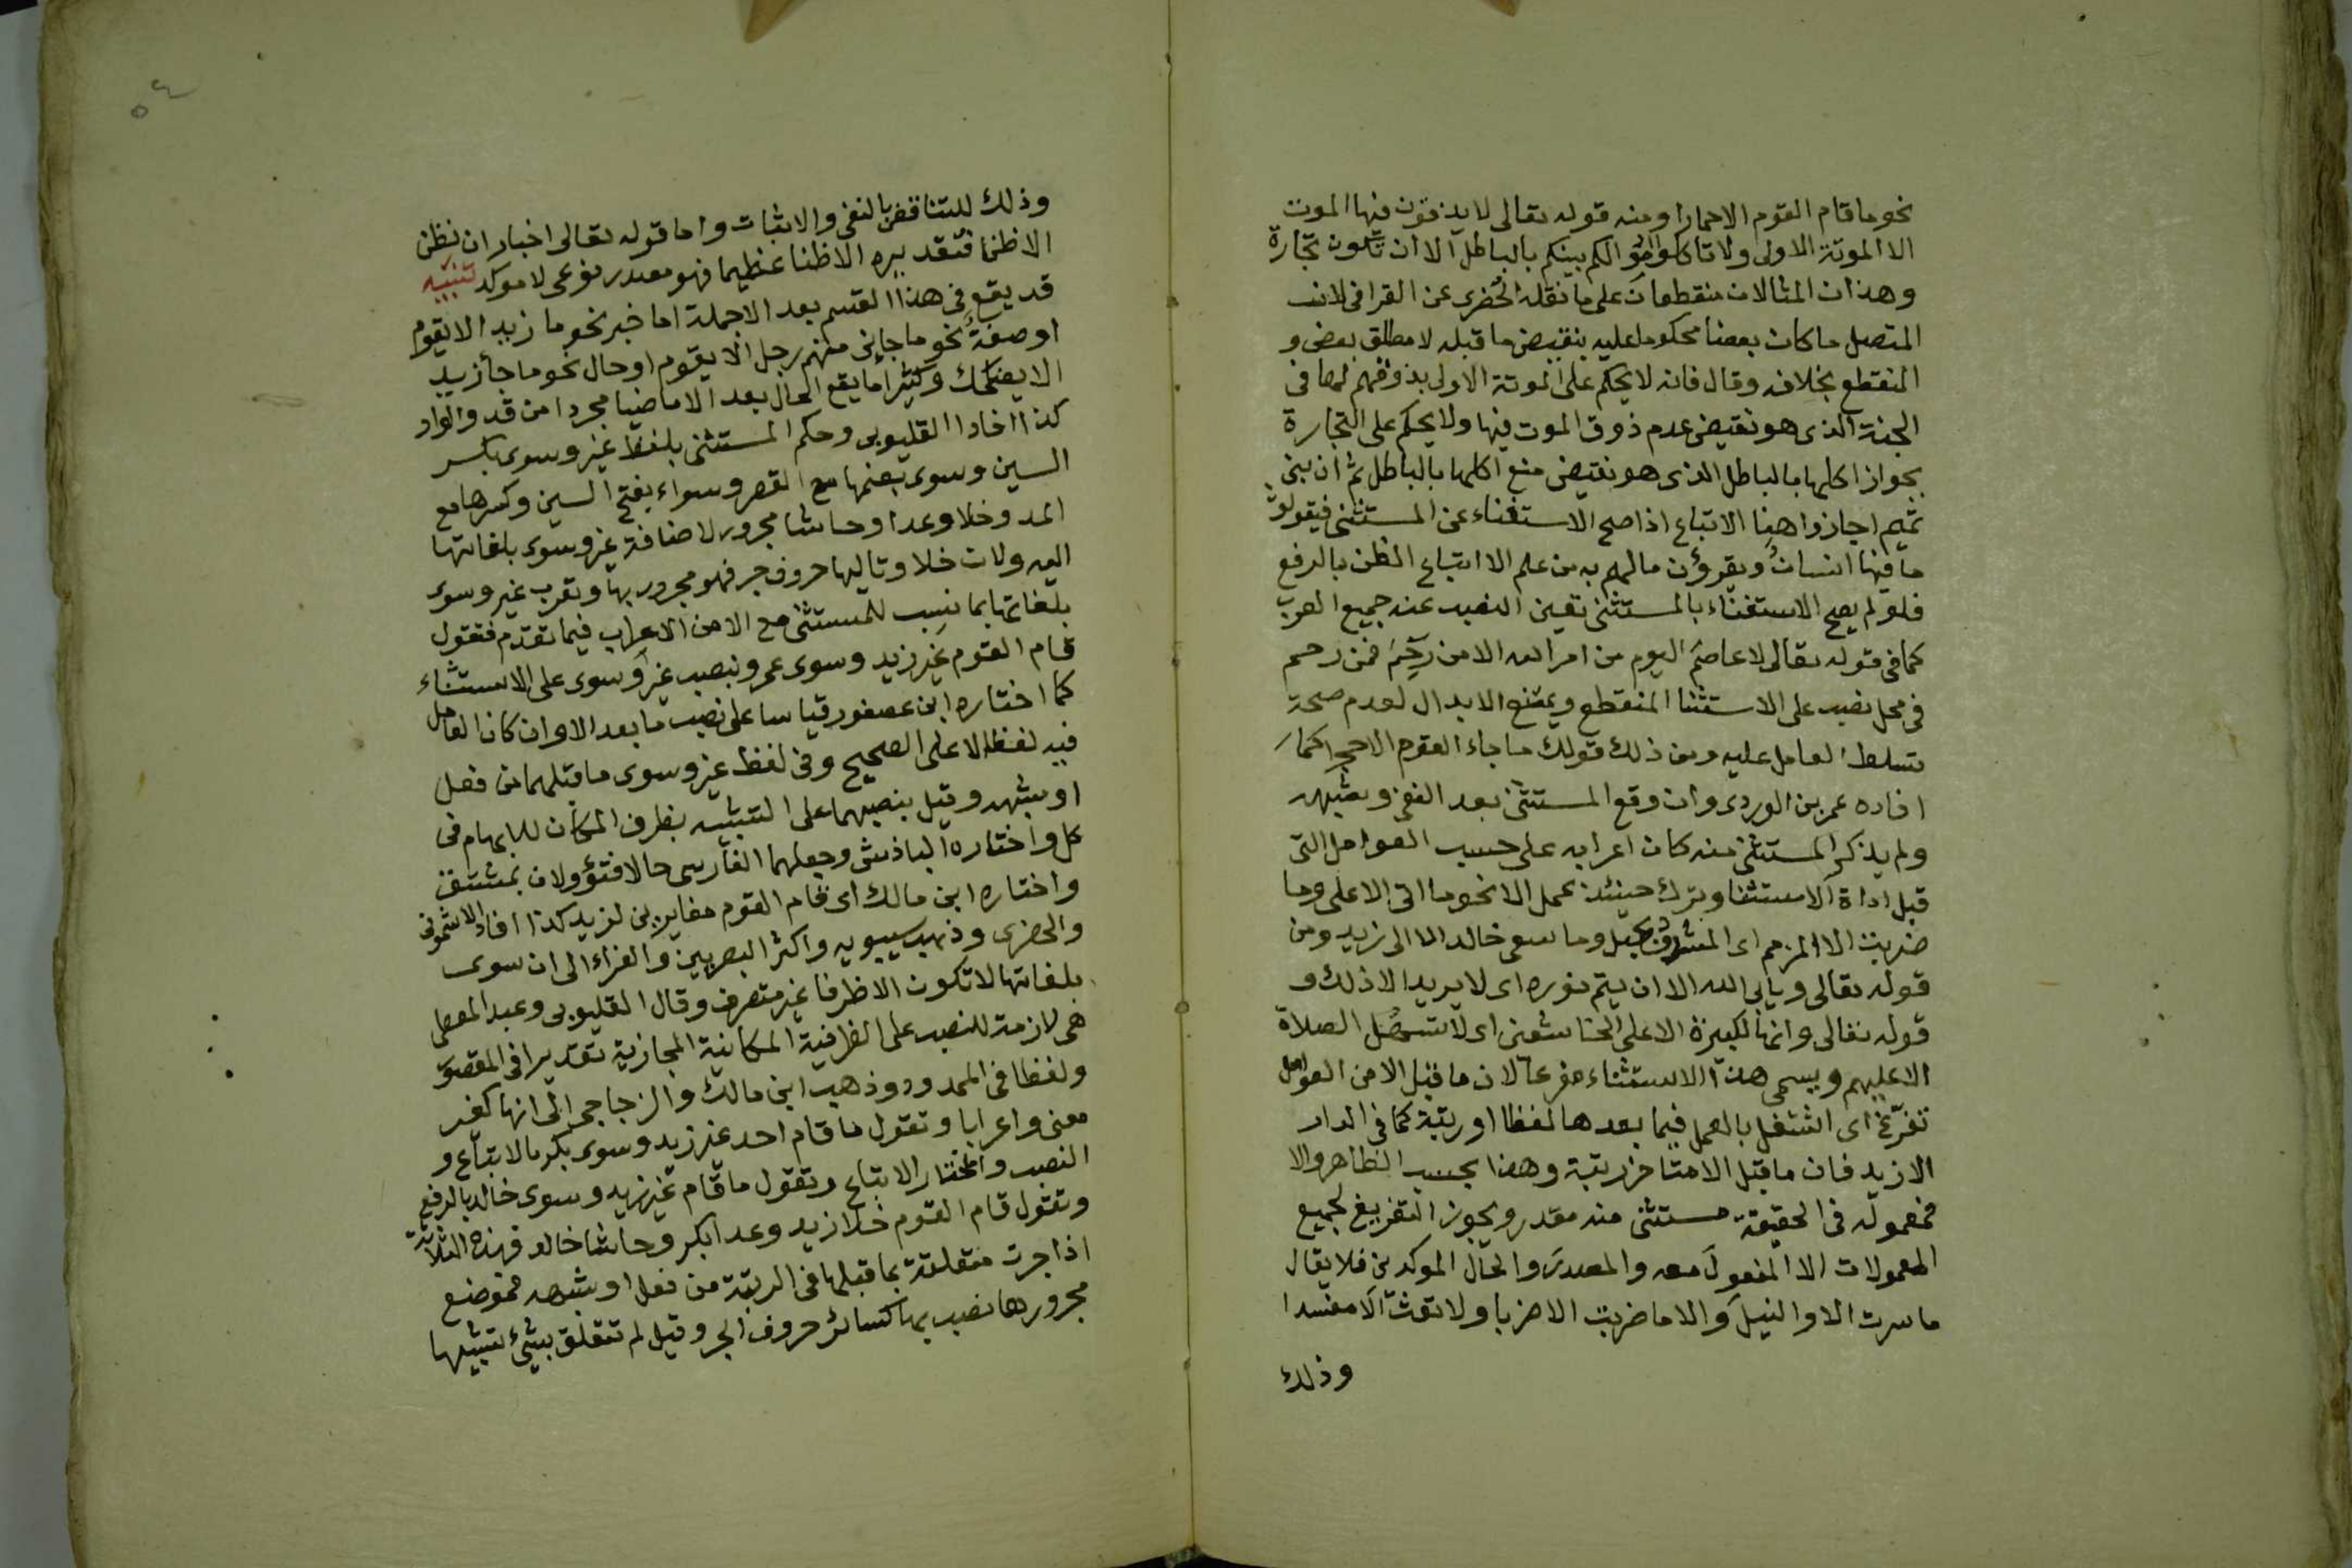 نحو ما قام القوم الا حمارا ومنه قوله تعالى لا يذوقون فيها الموت
الا الموتة الاولى ولا تاكلوا اموالكم بينكم بالباطل الا ان تكون تجارة
وهذان المثالان منقطعان على ما نقله الخضرى عن القرافى لان
المتصل ما كان بعضا محكوما عليه بنقيض ما قبله لا مطلق بعض و
المنقطع بخلافه وقال فانه لا يحكم على الموتة الاولى بذوقهم لها فى
الجنة الذى هو نقيض عدم ذوق الموت فيها ولا يحكم على التجارة
بجواز اكلها بالباطل الذى هو نقيض منع اكلها بالباطل ثم ان بنى
تميم اجازوا هنا الاتباع اذا صح الاستغناء عن المستثنى فيقولون
ما فيها انسانٌ ويقرؤن مالهم به من علم الا اتباع الظن بالرفع
فلو لم يصح الاستغناء بالمستثنى تعين النصب عند جميع العرب
كما فى قوله تعالى لا عاصم اليوم من امر الله الا من رَحِمَ فمن رحم
فى محل نصب على الاستثنا المنقطع ويمتنع الابدال لعدم صحة
تسلط العامل عليه ومن ذلك قولك ما جاء القوم الا حجرا كما
افاده عمر بن الوردى وان وقع المستثنى بعد النفى وشبهه
ولم يذكر المستثنى منه كان اعرابه على حسب العوامل التى
قبل اداة الاستثنا وترك حينئذ عمل الا نحو ما اتى الا على وما
ضربت الا المزمم اى المشدود بحبل وما سعى خالد الا الى زيد ومن
قوله تعالى ويأبى الله الا ان يتم نوره اى لا يريد الا ذلك و
قوله تعالى وانها لكبيرة الا على الخاشعين اى لا تسهل الصلاة
الا عليهم ويسمى هذا الاستثناء مفرغا لان ما قبل الا من العوامل
تفرّغ اى اشتغل بالعمل فيما بعدها لفظا او رتبة كما فى الدار
الا زيد فان ما قبل الا متاخر رتبة وهذا بحسب الظاهر والا
فمعموله فى الحقيقة مستثنى منه مقدر ويجوز التفريغ لجميع
المعمولات الا المفعولَ معه والمصدرَ والحالَ الموكدين فلا يقال
ما سرت الا والنيلَ والا ما ضربت الا ضربا ولا تعث الا مفسدا
وذلك
٥٤
وذلك للتناقض بالنفى والاثبات واما قوله تعالى اخبارا ان نظن
الا ظنا فتقديره الا ظنا عظيما فهو مصدر نوعى لا موكد تنبيه
قد يقع فى هذا القسم بعد الا جملة اما خبر نحو ما زيد الا يقوم
او صفة نحو ما جاءنى منهم رجل الا يقوم او حال نحو ما جاء زيد
الا يضحك وكثيرا ما يقع الحال بعد الا ماضيا مجردا من قد والواو
كذا افاد القليوبى وحكم المستثنى بلفظ غير وسوى بكسر
السين وسوى بضمها مع القصر وسواء بفتح السين وكسرها مع
المد وخلا وعدا وحاشا مجرور لاضافة غير وسوى بلغاتها
اليه ولان خلا وتاليها حروف جر فهو مجرور بها وتعرب غير وسوى
بلغاتها بما نسب للمستثنى مع الا من الاعراب فيما تقدم فتقول
قام القوم غيرَ زيد وسوى عمرو بنصب غير وسوى على الاستثناء
كما اختاره ابن عصفور قياسا على نصب ما بعد الا وان كان العامل
فيه لفظ الا على الصحيح وفى لفظ غير وسوى ما قبلهما من فعل
او شبهه وقيل بنصبهما على التشبيه بظرف المكان للابهام فى
كل واختاره الباذش وجعلهما الفارسى حالا فتؤولان بمشتق
واختاره ابن مالك اى قام القوم مغايرين لزيد كذا افاد الاشمونى
والخضرى وذهب سيبويه واكثر البصريين والفراء الى ان سوى
بلغاتها لا تكون الا ظرفا غير متصرف وقال القليوبى وعبد المعطى
هى لازمة للنصب على الظرفية المكانية المجازية تقديرا فى المقصور
ولفظا فى الممدود وذهب ابن مالك والزجاجى الى انها كغير
معنى واعرابا وتقول ما قام احد غير زيد وسوى بكر بالاتباع و
النصب والمختار الاتباع وتقول ما قام غير زيد وسوى خالد بالرفع
وتقول قام القوم خلا زيد وعدا بكر وحاشا خالد فهذه الثلاثة
اذا جرت متعلقة بما قبلها فى الرتبة من فعل او شبهه فموضع
مجرورها نصب بها كسائر حروف الجر وقيل لم تتعلق بشئ لشبهها